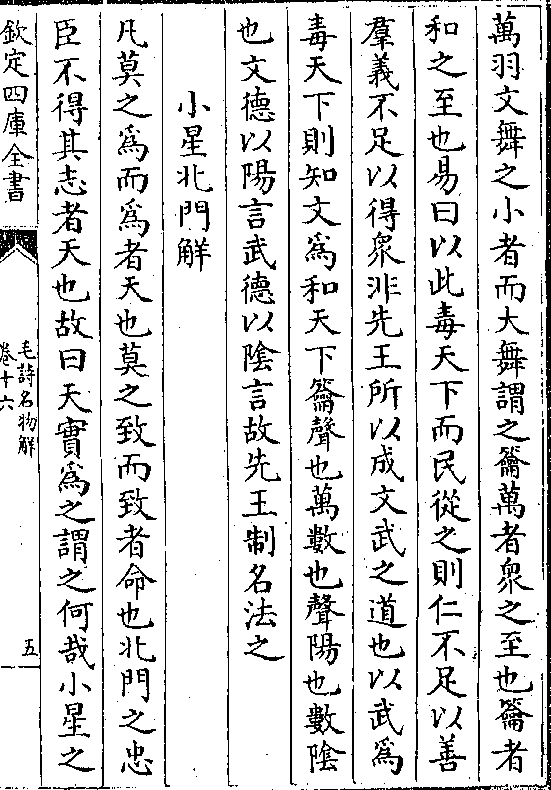 萬羽文舞之小者而大舞謂之籥萬者衆之至也籥者
和之至也易曰以此毒天下而民從之則仁不足以善
羣義不足以得衆非先王所以成文武之道也以武爲
毒天下則知文爲和天下籥聲也萬數也聲陽也數陰
也文德以陽言武德以陰言故先王制名法之
小星北門解
凡莫之爲而爲者天也莫之致而致者命也北門之忠
臣不得其志者天也故曰天實爲之謂之何哉小星之
欽定四庫全書
毛詩名物解
卷十六
五